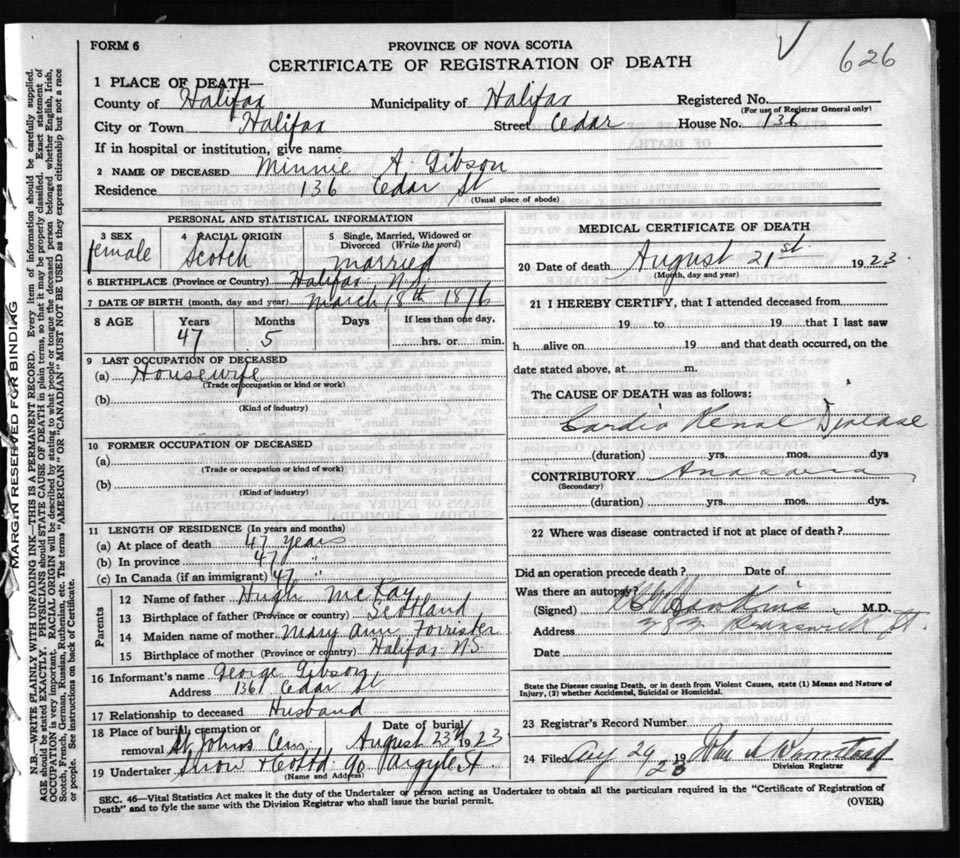 FORM 6
PROVINCE OF NOVA SCOTIA
CERTIFICATE OF REGISTRATION OF DEATH
626
1 PLACE OF DEATH—
County of Halifax Municipality of Halifax Registered No.
(For use of Registrar General only)
City or Town Halifax Street Cedar House No. 136
If in hospital or institution, give name
2 NAME OF DECEASED Minnie A. Gibson
Residence 136 Cedar St
(Usual place of abode)
PERSONAL AND STATISTICAL INFORMATION
3 SEX 4 RACIAL ORIGIN 5 Single, Married, Widowed or Divorced (Write the word)
female Scotch married
6 BIRTHPLACE (Province or Country) Halifax N.S.
7 DATE OF BIRTH (month, day and year) March 18th 1876
8 AGE Years Months Days If less than one day,
47 5 hrs. or min.
9 LAST OCCUPATION OF DECEASED
(a) Housewife
(Trade or occupation or kind of work)
(b)
(Kind of industry)
10 FORMER OCCUPATION OF DECEASED
(a)
(Trade or occupation or kind of work)
(b)
(Kind of industry)
11 LENGTH OF RESIDENCE (In years and months)
(a) At place of death 47 years
(b) In province 47 "
(c) In Canada (if an immigrant) 47 "
Parents
12 Name of father Hugh McKay
13 Birthplace of father (Province or country) Scotland
14 Maiden name of mother Mary Ann Forrister
15 Birthplace of mother (Province or country) Halifax NS
16 Informant's name George Gibson
Address 136 Cedar St
17 Relationship to deceased Husband
18 Place of burial, cremation or removal St Johns Cem Date of burial August 23rd 1923
19 Undertaker Snow & Co Ltd 90 Argyle St
(Name and Address)
MEDICAL CERTIFICATE OF DEATH
20 Date of death August 21st 1923
(Month, day and year)
21 I HEREBY CERTIFY, that I attended deceased from
19 to 19 that I last saw
h alive on 19 and that death occurred, on the
date stated above, at m.
The CAUSE OF DEATH was as follows:
Cardio Renal Disease
(duration) yrs. mos. dys
CONTRIBUTORY Anasarca
(Secondary)
(duration) yrs. mos. dys.
22 Where was disease contracted if not at place of death?
Did an operation precede death? Date of
Was there an autopsy?
(Signed) Hawkins M.D.
Address Brunswick St.
Date
State the Disease causing Death, or in death from Violent Causes, state (1) Means and Nature of
Injury, (2) whether Accidental, Suicidal or Homicidal.
23 Registrar's Record Number
24 Filed Aug 24 1923
Division Registrar
SEC. 46—Vital Statistics Act makes it the duty of the Undertaker or person acting as Undertaker to obtain all the particulars required in the "Certificate of Registration of
Death" and to fyle the same with the Division Registrar who shall issue the burial permit.
(OVER)
MARGIN RESERVED FOR BINDING
N.B.—WRITE PLAINLY WITH UNFADING INK—THIS IS A PERMANENT RECORD. Every item of information should be carefully supplied.
AGE should be stated EXACTLY. PHYSICIANS should STATE CAUSE OF DEATH in plain terms, so that it may be properly classified. Exact statement of
OCCUPATION is very important. RACIAL ORIGIN will be described by stating to what people or tongue the deceased person belonged whether English, Irish,
Scotch, French, German, Russian, Ruthenian, etc. The terms "AMERICAN" OR "CANADIAN" MUST NOT BE USED as they express citizenship but not a race
or people. See instructions on back of Certificate.